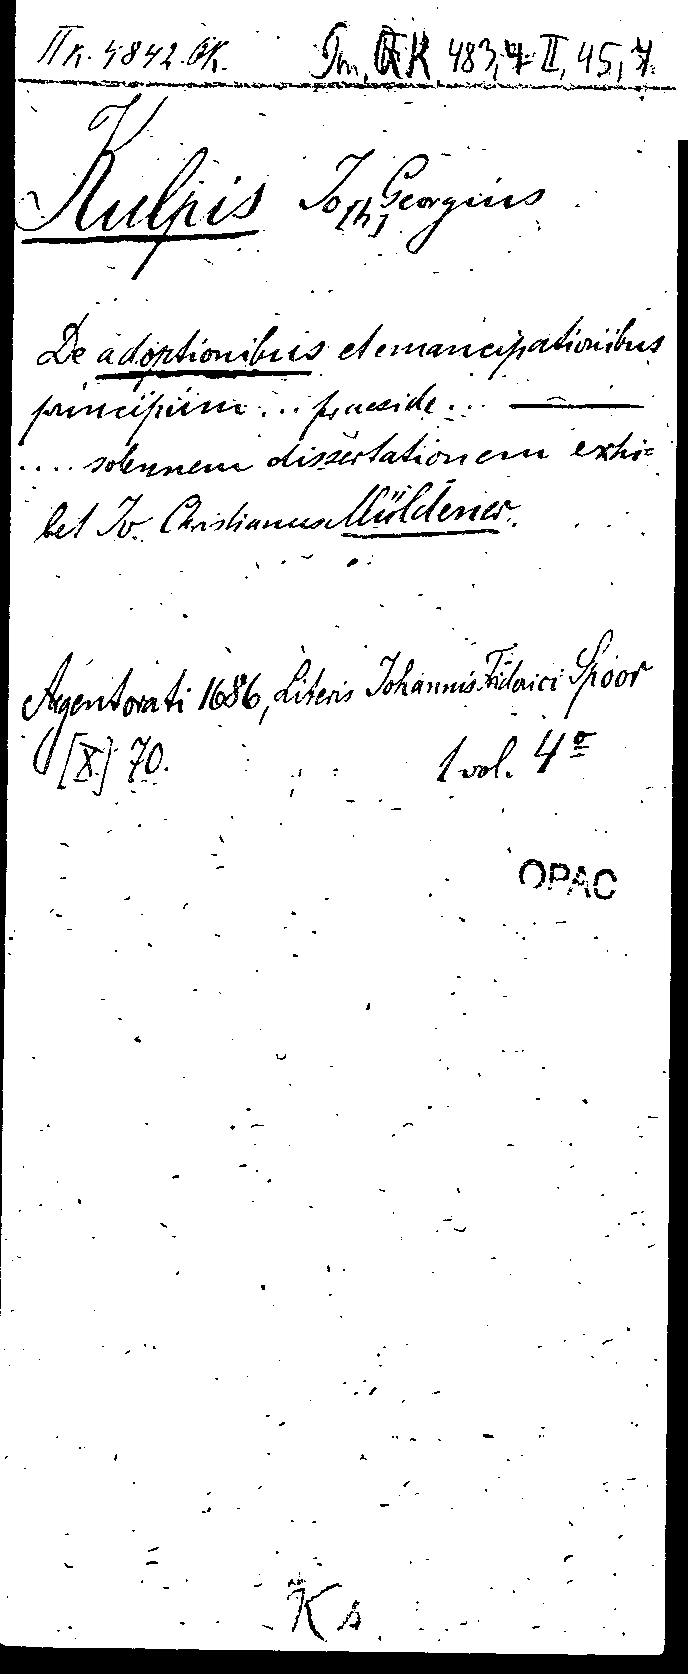 II k. 4842. GK. Im, GK 483,7 II, 45, 7.
Kulpis Jo[h] Georgius
De adoptionibus et emancipationibus
principum ... praeside ... ———
.... solennem dissertationem exhi=
bet Jo. Christianus Müldener.
Argentorati 1686, Literis Johannis Friderici Spoor
[X] 70. 1 vol. 4º
OPAC
K s